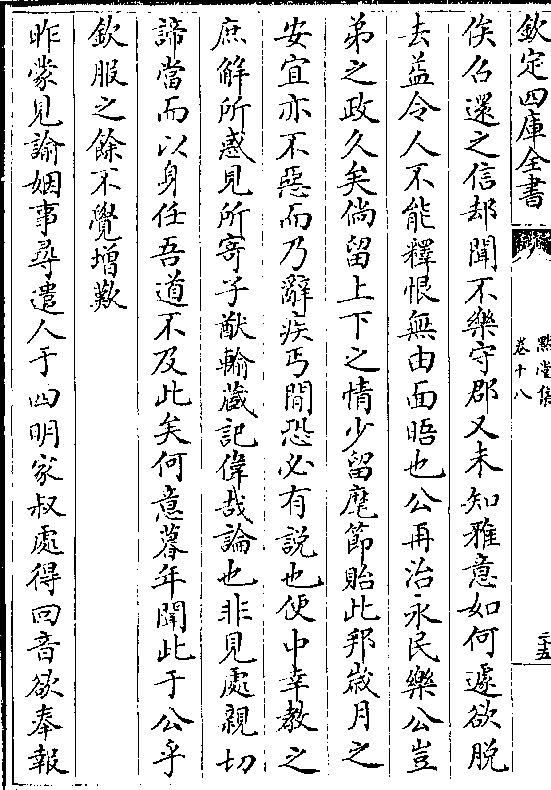 欽定四庫全書
默堂集
卷十八
二十五
俟名還之信却聞不樂守郡又未知雅意如何遽欲脱
去益令人不能釋恨無由面晤也公再治永民樂公豈
弟之政久矣倘留上下之情少留麾節貽此邦歲月之
安宜亦不惡而乃辭疾丐閒恐必有説也便中幸教之
庶解所惑見所寄子猷輪藏記偉哉論也非見處親切
諦當而以身任吾道不及此矣何意暮年聞此于公乎
欽服之餘不覺增歎
昨蒙見諭姻事尋遣人于四明家叔處得回音欲奉報